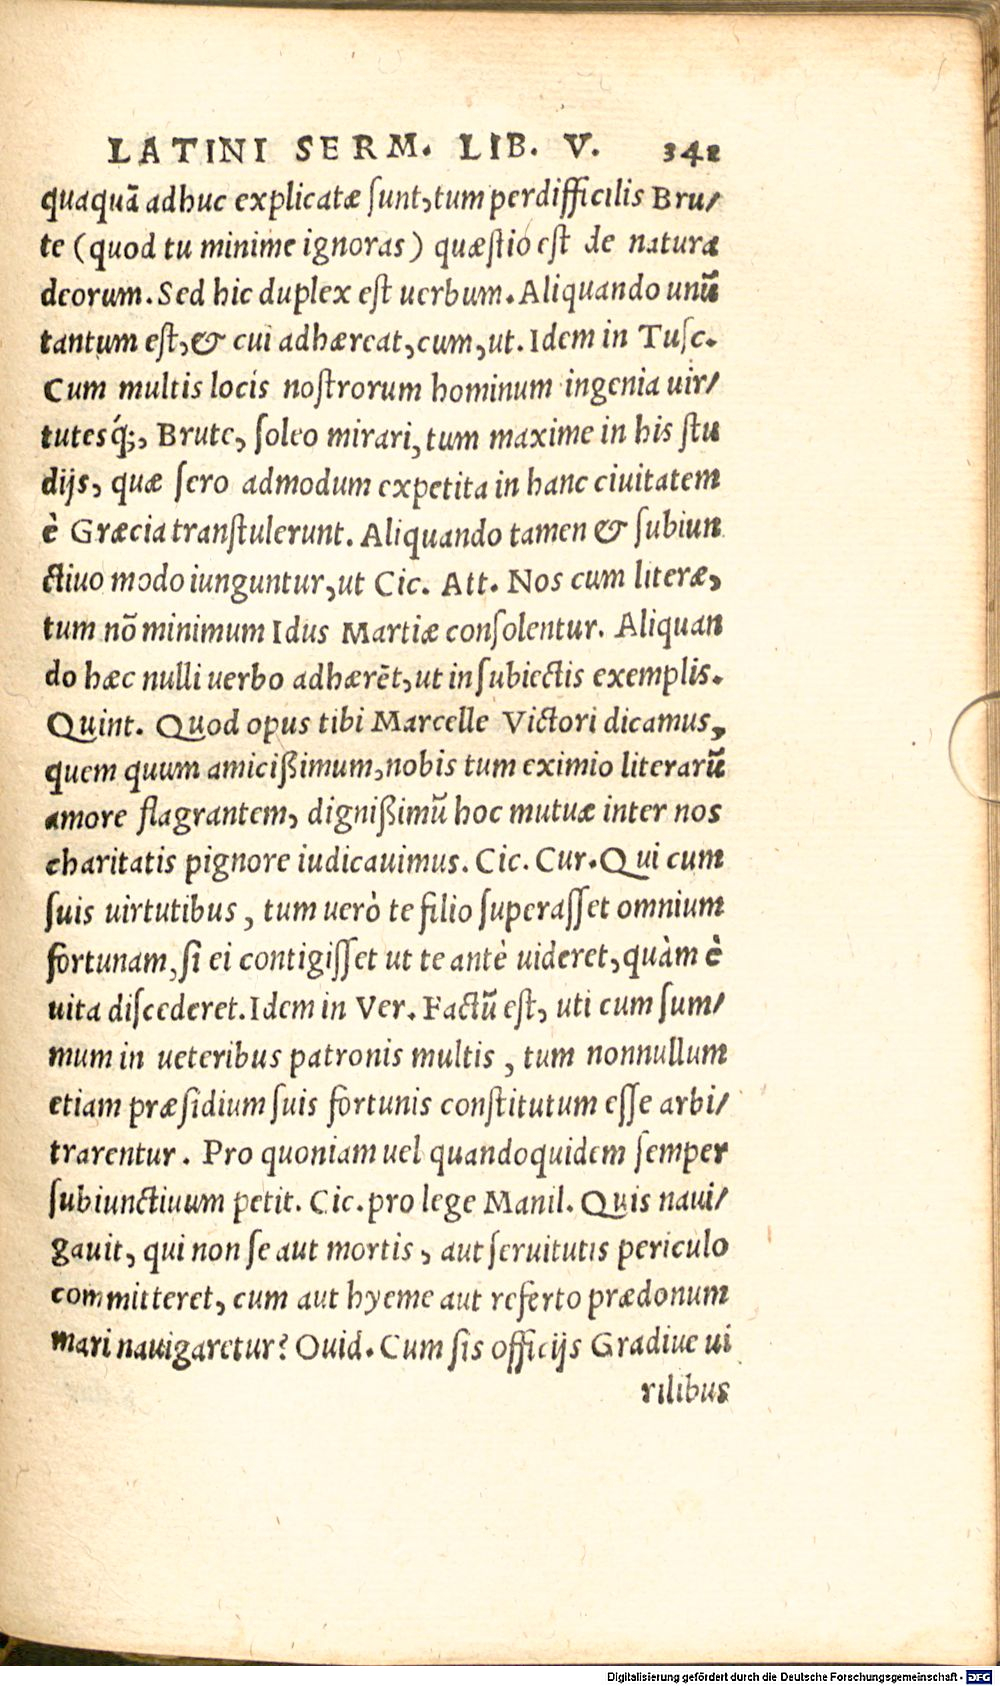 LATINI SERM. LIB. V. 342
quaquā adhuc explicatæ ſunt, tum perdifficilis Bru/
te (quod tu minime ignoras) quæſtio eſt de natura
deorum. Sed hic duplex eſt uerbum. Aliquando unū
tantum eſt, & cui adhæreat, cum, ut. Idem in Tuſc.
Cum multis locis noſtrorum hominum ingenia uir/
tutesq́;, Brute, ſoleo mirari, tum maxime in his ſtu
dijs, quæ ſero admodum expetita in hanc ciuitatem
è Græcia tranſtulerunt. Aliquando tamen & ſubiun
ctiuo modo iunguntur, ut Cic. Att. Nos cum literæ,
tum nō minimum Idus Martiæ conſolentur. Aliquan
do hæc nulli uerbo adhærēt, ut in ſubiectis exemplis.
Quint. Quod opus tibi Marcelle Victori dicamus,
quem quum amicißimum, nobis tum eximio literarū
amore flagrantem, dignißimū hoc mutuæ inter nos
charitatis pignore iudicauimus. Cic. Cur. Qui cum
ſuis uirtutibus, tum uerò te filio ſuperaſſet omnium
fortunam, ſi ei contigiſſet ut te antè uideret, quàm è
uita diſcederet. Idem in Ver. Factū eſt, uti cum ſum/
mum in ueteribus patronis multis, tum nonnullum
etiam præſidium ſuis fortunis conſtitutum eſſe arbi/
trarentur. Pro quoniam uel quandoquidem ſemper
ſubiunctiuum petit. Cic. pro lege Manil. Quis naui/
gauit, qui non ſe aut mortis, aut ſeruitutis periculo
committeret, cum aut hyeme aut referto prædonum
mari nauigaretur? Ouid. Cum ſis officijs Gradiue ui
rilibus
Digitalisierung gefördert durch die Deutsche Forschungsgemeinschaft - DFG